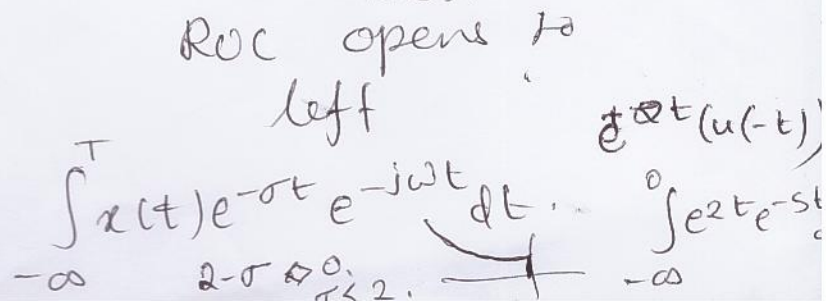 ROC opens to
left
e^{2t}(u(-t))
∫_{-∞}^{T} x(t)e^{-σt} e^{-jωt} dt.
∫_{-∞}^{0} e^{2t}e^{-st}
2-σ > 0.
σ < 2.